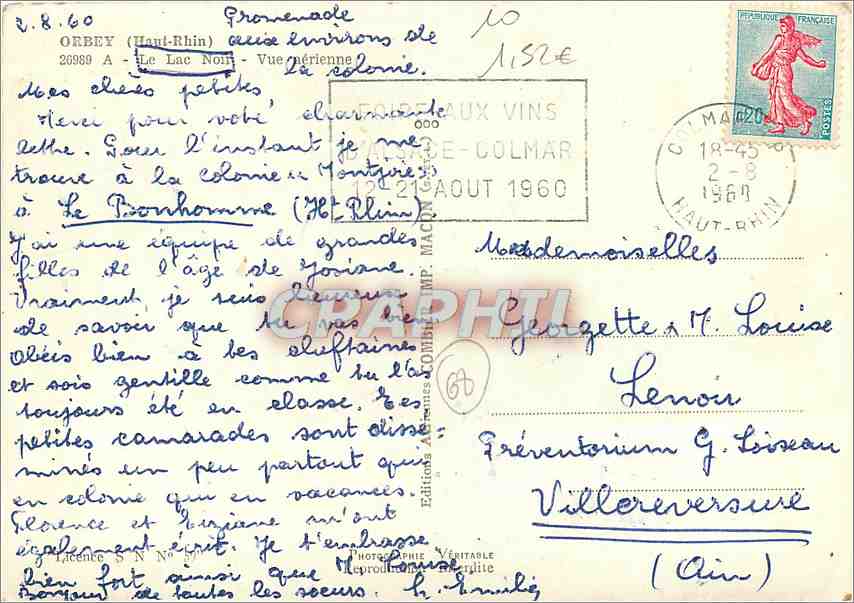 2.8.60
Promenade
aux environs de
la colonie.
ORBEY (Haut-Rhin)
26989 A - Le Lac Noir - Vue aérienne
10
1,52€
Mes chères petites
Merci pour votre charmante
lettre. Pour l'instant je me
trouve à la colonie
à Le Bonhomme (Ht Rhin)
J'ai une équipe de grandes
filles de l'âge de Josiane.
Vraiment, je suis heureuse
de savoir que tu vas bien
obéis bien à tes cheftaines
et sois gentille comme tu l'as
toujours été en classe. Tes
petites camarades sont dissé-
minés un peu partout qui
en colonie qui en vacances.
Florence et m'ont
également écrit. Je t'embrasse
bien fort ainsi que M. Louise
Bonjour de toutes les soeurs.
Licence S N N°
Editions Aériennes COMBIER IMP. MACON
PHOTOGRAPHIE VÉRITABLE
Reproduction Interdite
68
FOIRE AUX VINS
D'ALSACE-COLMAR
12-21 AOUT 1960
COLMAR
18-45
2-8
1960
HAUT-RHIN
REPUBLIQUE FRANÇAISE
0,20
POSTES
Mesdemoiselles
Georgette & M. Louise
Lenoir
Préventorium G. Loiseau
Villereversure
(Ain)
CRAPHTI